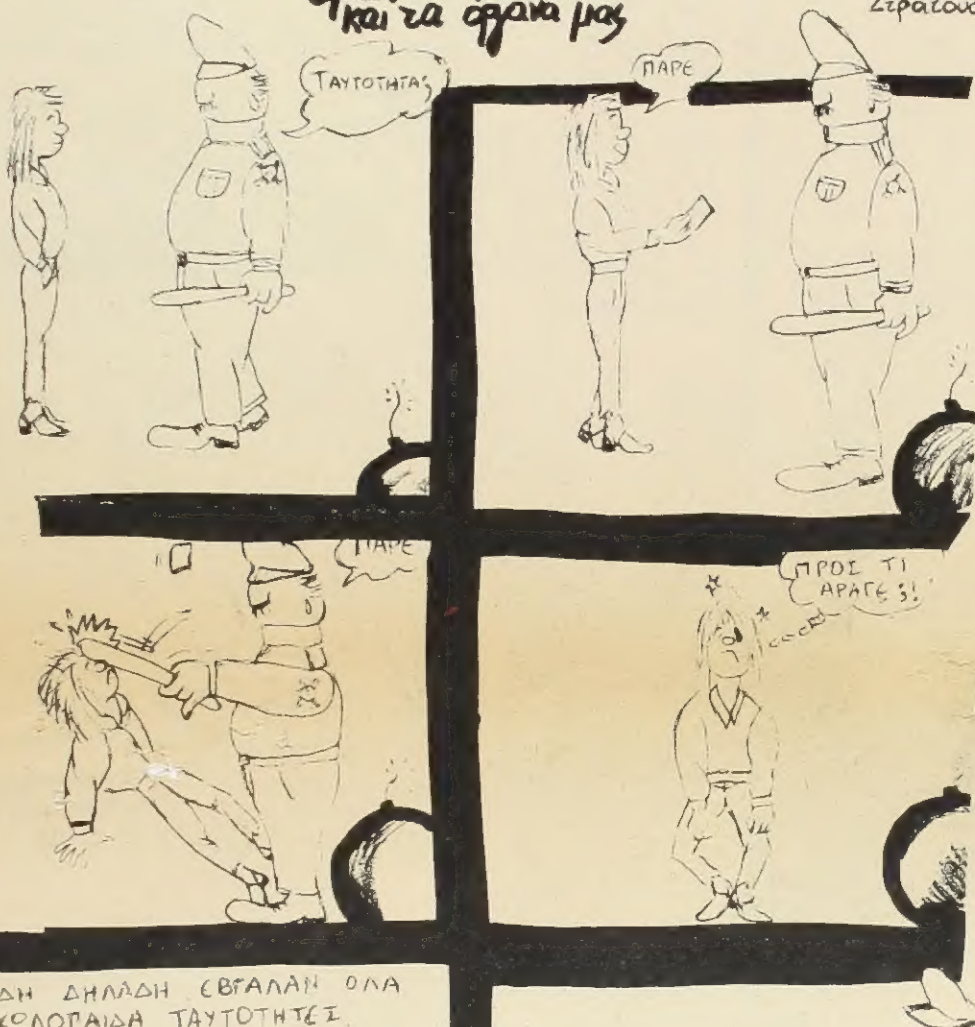 και τα όργανα μας
Στρατους
ΤΑΥΤΟΤΗΤΑ;
ΠΑΡΕ
ΠΑΡΕ
ΠΡΟΣ ΤΙ
ΑΡΑΓΕ ;!
ΔΗ ΔΗΛΑΔΗ ΕΒΓΑΛΑΝ ΟΛΑ
ΚΩΛΟΠΑΙΔΑ ΤΑΥΤΟΤΗΤΕΣ